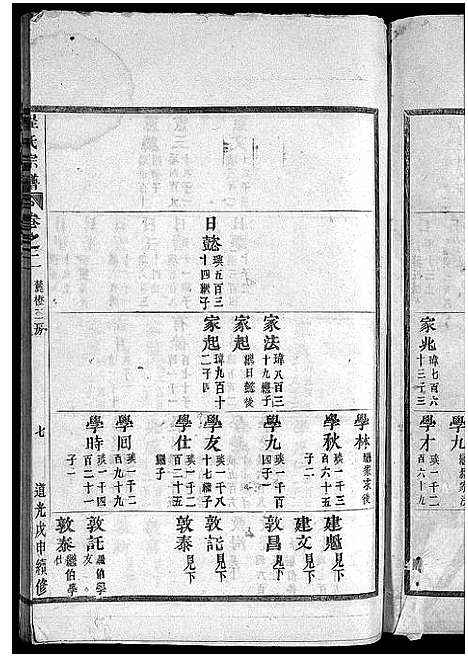 家兆 瑋七百六十三 子三
學九 繼家法
學才 瑛一千二百六十九
日懿 瑛五百三十四 繼子
家法 瑋八百三十九 繼子
家起 繼日懿後
家起 瑋九百十二 子四
學林 繼家求後
學秋 瑛一千三百六十五 子二
學九 瑛一千一百 四子
學友 瑛一千八十七 繼子
學仕 瑛一千二百二十五 繼子
學回 瑛一千二百九十九
學時 瑛一千一百二十一 子二
建魁 見下
建文 見下
敦昌 見下
敦託 見下
敦泰 見下
敦託 繼伯學友
敦泰 繼伯學仕
氏宗譜
卷之二
三房
七
道光戊申續修